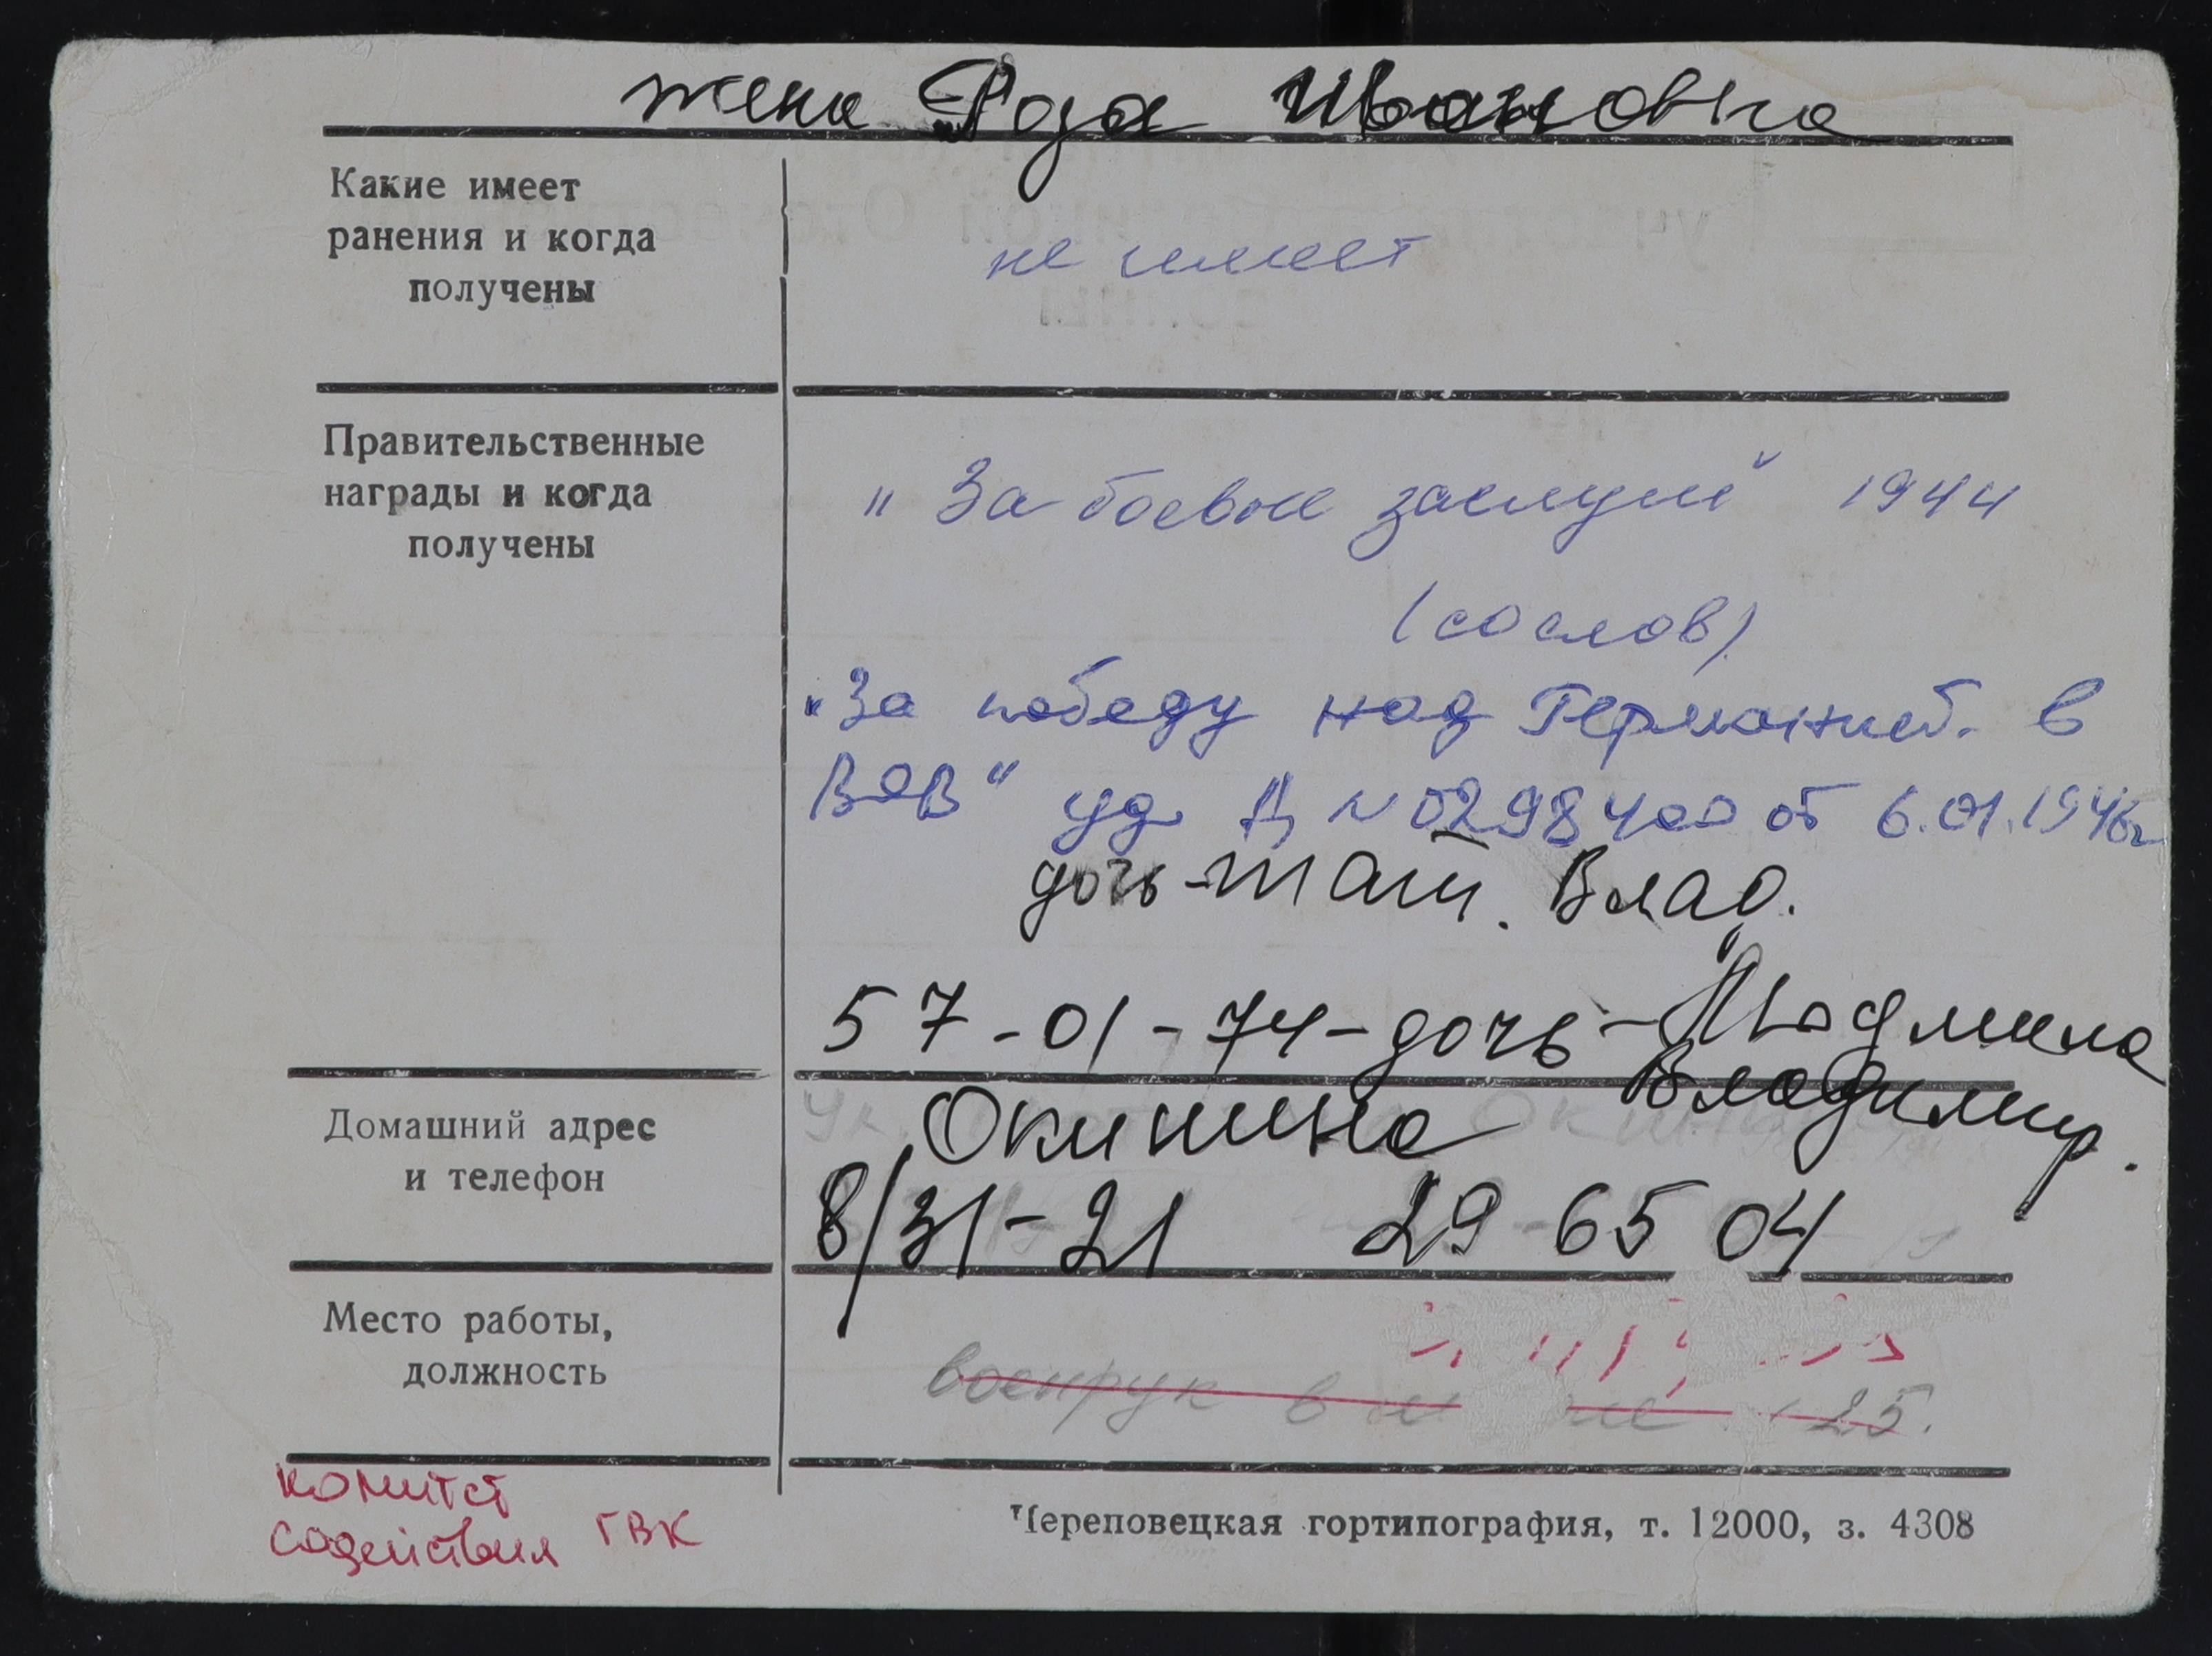 жена Роза Ивановна
Какие имеет
ранения и когда
получены
не имеет
Правительственные
награды и когда
получены
"За боевые заслуги" 1944
(со слов)
"За победу над Германией в
ВОВ" уд Д № 0298400 от 6.01.1946г
дочь-Тат. Влад.
57-01-74-дочь-Людмила
Владимир.
Домашний адрес
и телефон
Окинина
8/31-21 29-65 04
Место работы,
должность
военрук в 25.
комитет
содействия ГВК
Череповецкая гортипография, т. 12000, з. 4308